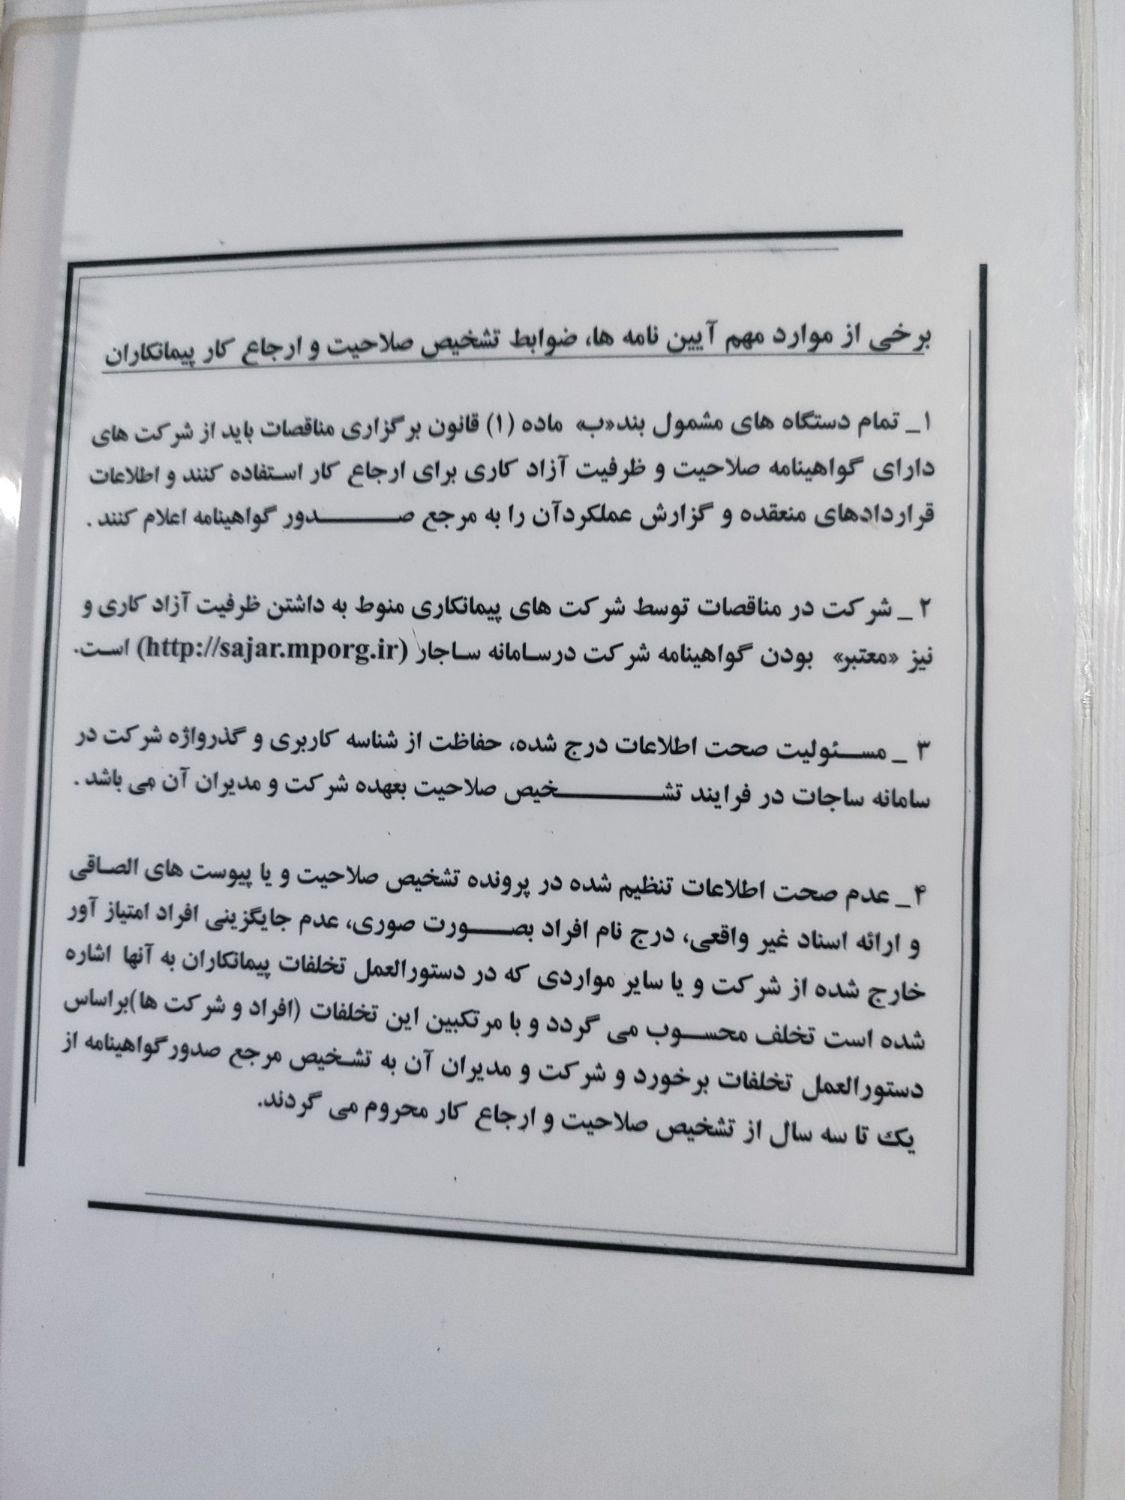 برخی از موارد مهم آیین نامه ها، ضوابط تشخیص صلاحیت و ارجاع کار پیمانکاران
۱_ تمام دستگاه های مشمول بند«ب» ماده (۱) قانون برگزاری مناقصات باید از شرکت های
دارای گواهینامه صلاحیت و ظرفیت آزاد کاری برای ارجاع کار استفاده کنند و اطلاعات
قراردادهای منعقده و گزارش عملکردآن را به مرجع صـــــــدور گواهینامه اعلام کنند .
۲_ شرکت در مناقصات توسط شرکت های پیمانکاری منوط به داشتن ظرفیت آزاد کاری و
نیز «معتبر» بودن گواهینامه شرکت درسـامانه سـاجار (http://sajar.mporg.ir) اسـت.
۳_ مســئولیت صحت اطلاعات درج شده، حفاظت از شناسه کاربری و گذرواژه شرکت در
سامانه ساجات در فرایند تشـــــــــخیص صلاحیت بعهده شرکت و مدیران آن می باشد .
۴_ عدم صحت اطلاعات تنظیم شده در پرونده تشخیص صلاحیت و یا پیوست های الصـاقی
و ارائه اسناد غیر واقعی، درج نام افراد بصـــورت صوری، عدم جایگزینی افراد امتیاز آور
خارج شده از شرکت و یا سایر مواردی که در دستورالعمل تخلفات پیمانکاران به آنها اشاره
شده است تخلف محســوب می گردد و با مرتکبین این تخلفات (افراد و شرکت ها)براساس
دستورالعمل تخلفات برخورد و شرکت و مدیران آن به تشـخیص مرجع صدورگواهینامه از
یک تا سه سال از تشخیص صلاحیت و ارجاع کار محروم می گردند.